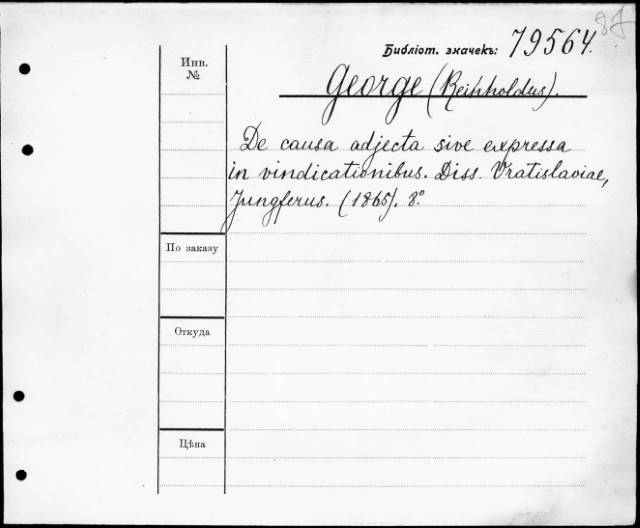 87
Библіот. значекъ: 79564.
Инв.
№
George (Reinholdus).
De causa adjecta sive expressa
in vindicationibus. Diss. Vratislaviae,
Jungferus. (1865). 8°.
По заказу
Откуда
Цѣна